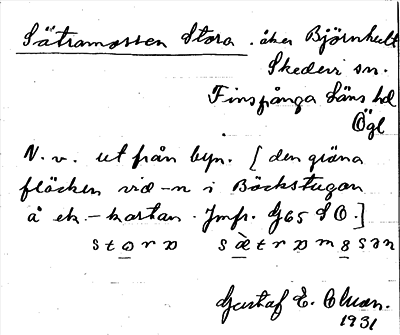 Sätramossen Stora . åker Björnhult
Skedevi sn.
Finspånga Läns hd
Ögl
N. v. ut från byn. [ den gröna
fläcken vid -n i Backstugan
å ek. - kartan . Jmfr. G65 SO.]
storɒ sætrɒmɞsən
Gustaf E.
1931